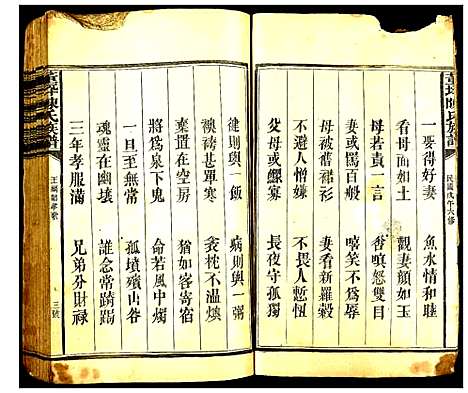 一要得好妻　魚水情和睦
看母面如土　觀妻顏如玉
母若責一言　含嗔怒雙目
妻或罵百般　嘻笑不為辱
母被舊裙衫　妻看新羅縠
不避人憎嫌　不畏人慙恧
父母或鰥寡　長夜守孤獨
健則與一飯　病則與一粥
襖褥甚單寒　衾枕不溫燠
棄置在空房　猶如客寄宿
將為泉下鬼　命若風中燭
一旦至無常　孤墳殯山谷
魂靈在幽壤　誰念常踡跼
三年孝服滿　兄弟分財祿
陳氏族譜
民國戊午六修
三號